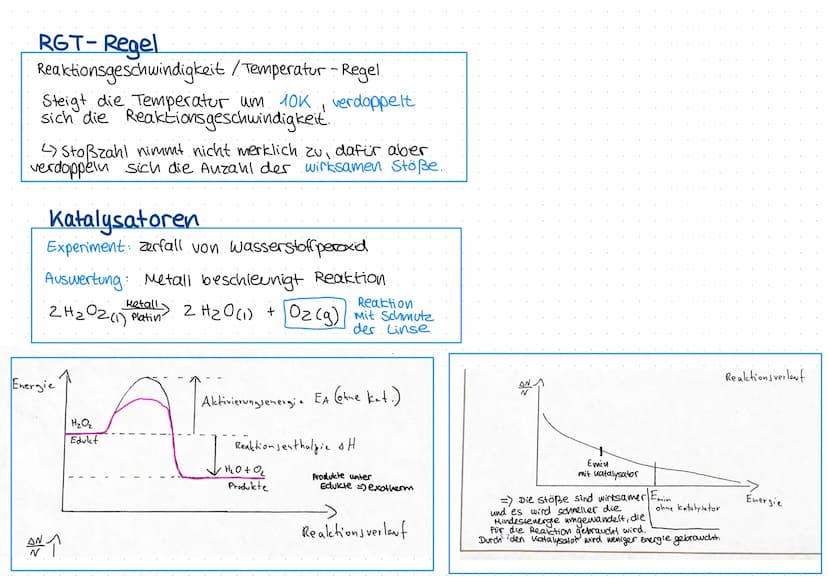 RGT-Regel
Reaktionsgeschwindigkeit / Temperatur-Regel
Steigt die Temperatur um 10K, verdoppelt
sich die Reaktionsgeschwindigkeit.
↳ Stoßzahl nimmt nicht merklich zu, dafür aber
verdoppeln sich die Anzahl der wirksamen Stöße.
Katalysatoren
Experiment: zerfall von Wasserstoffperoxid
Auswertung: Metall beschleunigt Reaktion
2 H2O2(l) Metall Platin → 2 H2O(l) + O2(g)
Reaktion
mit Schmutz
der Linse
Energie
H2O2
Edukt
Aktivierungsenergie EA (ohne Kat.)
Reaktionsenthalpie ΔH
H2O + O2
Produkte
Produkte unter
Edukte => exotherm
Reaktionsverlauf
ΔN/N
Reaktionsverlauf
ΔN/N
Emin
mit Katalysator
Emin
ohne Katalysator
Energie
=> Die Stöße sind wirksamer
und es wird schneller die
Mindesenergie umgewandelt, die
für die Reaktion gebraucht wird.
Durch den Katalysator wird weniger Energie gebraucht.